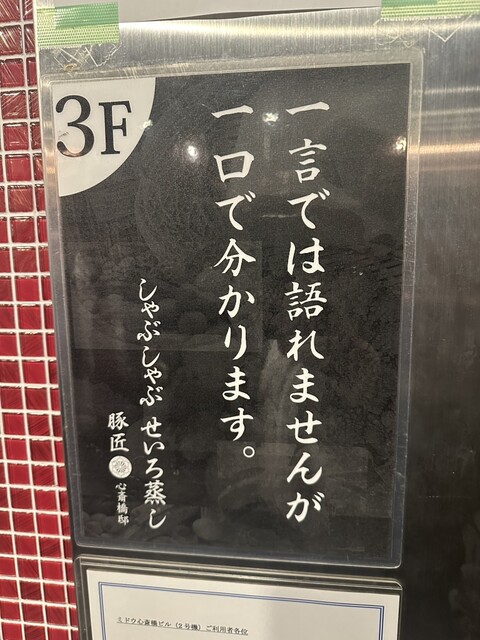 3F
一言では語れませんが
一口で分かります。
しゃぶしゃぶ せいろ蒸し
豚匠 心斎橋邸
ミドウ心斎橋ビル(2号機)ご利用者各位